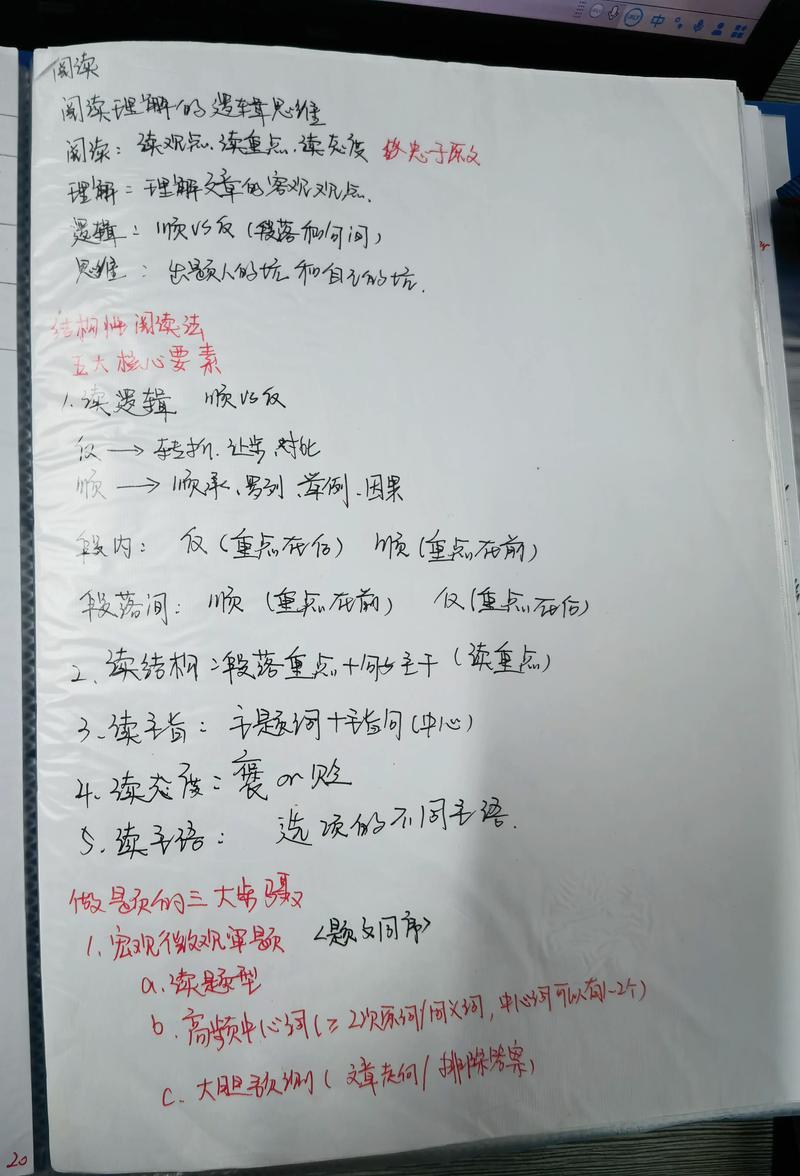 中
阅读
阅读理解的逻辑思维
阅读：读观点、读重点、读态度 忠于原文
理解：理解文章的客观观点.
逻辑：顺VS反（段落和句间）
思维：出题人的坑和自己的坑.
结构性阅读法
五大核心要素
1.读逻辑 顺VS反
反→转折、让步、对比
顺→顺承、罗列、举例、因果
段内：反（重点在后） 顺（重点在前）
段落间：顺（重点在前） 反（重点在后）
2.读结构：段落重点+句子主干（读重点）
3.读主旨：主题词+主旨句（中心）
4.读态度：褒or贬
5.读主语：选项的不同主语.
做题的三大步骤
1.宏观微观审题 <题文同序>
a.读题型
b.高频中心词（≥2次原词/同义词，中心词可以有1-2个）
c.大胆预测（文章走向/排除答案）
20